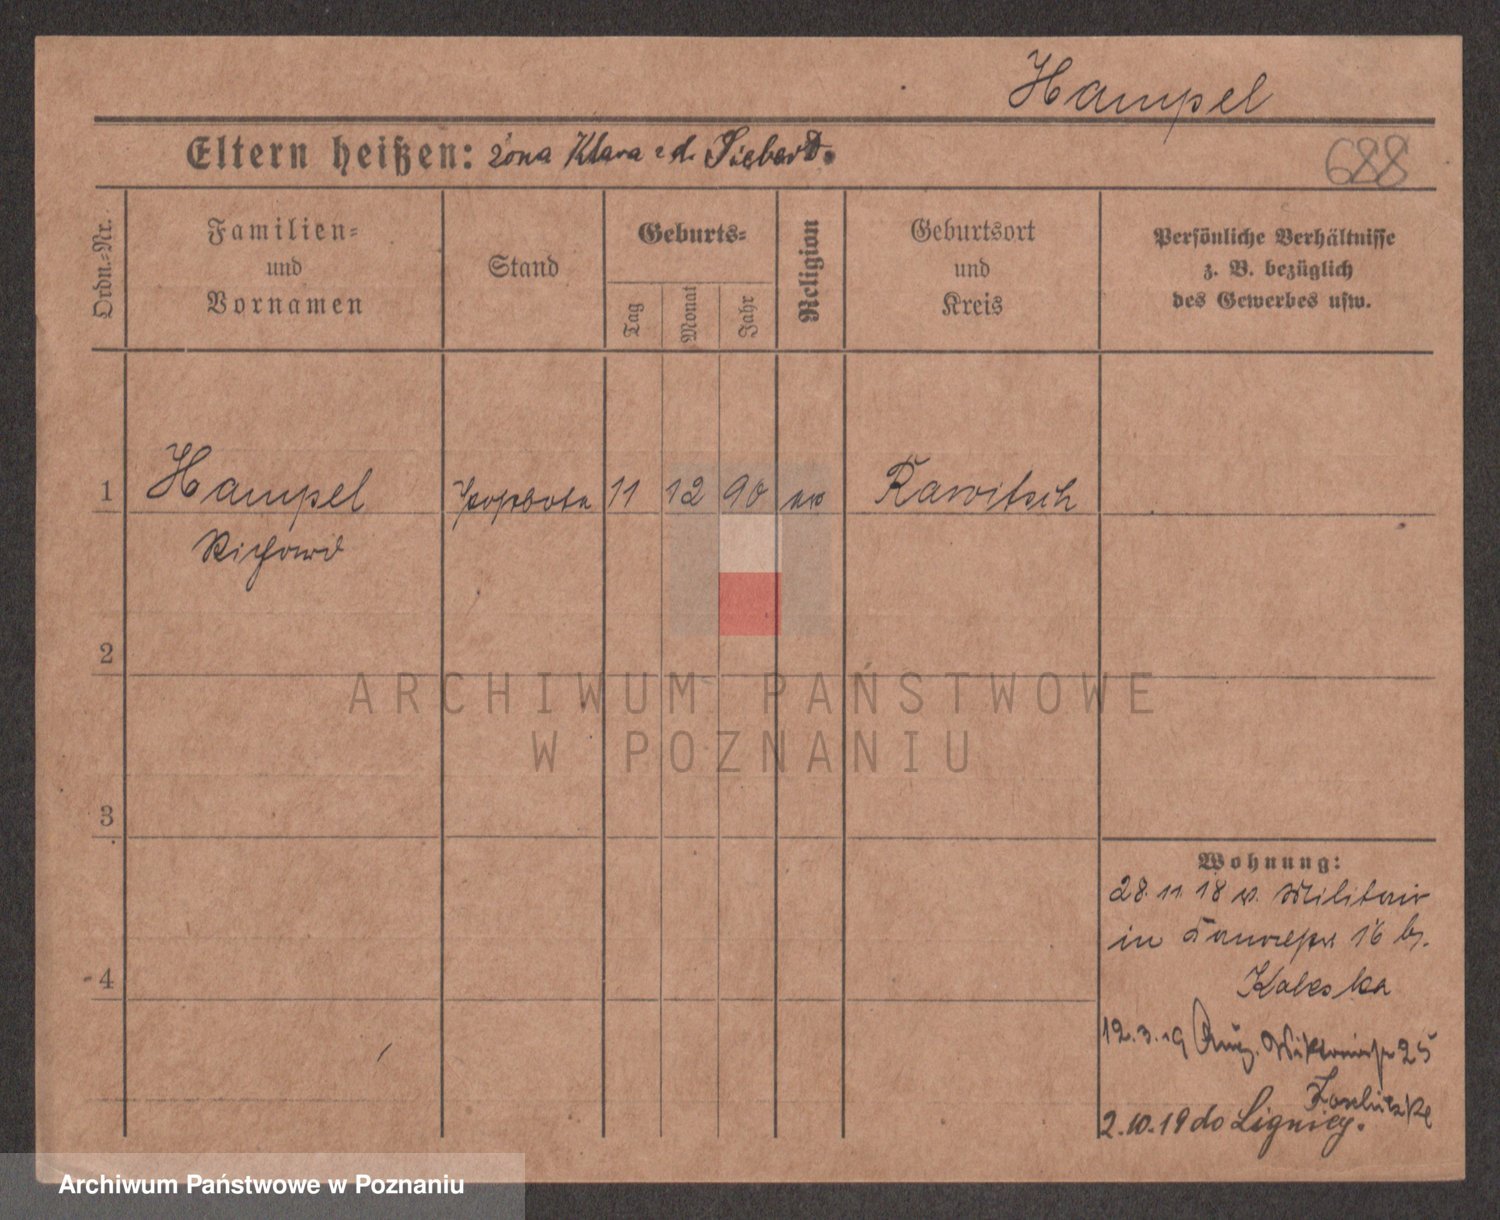 Hampel
Eltern heißen: żona Klara z d. Siebert.
688
Ordn.-Nr.
Familien-
und
Vornamen
Stand
Geburts-
Tag
Monat
Jahr
Religion
Geburtsort
und
Kreis
Persönliche Verhältnisse
z. B. bezüglich
des Gewerbes usw.
1 Hampel Postbote 11 12 90 Rawitsch
Richard
2
3
4
Wohnung:
28. 11. 18 v. Militair
in 16 b.
12. 3. 19 Aug. Viktoriastr 25
2. 10. 19 do Lignicy.
ARCHIWUM PAŃSTWOWE
W POZNANIU
Archiwum Państwowe w Poznaniu